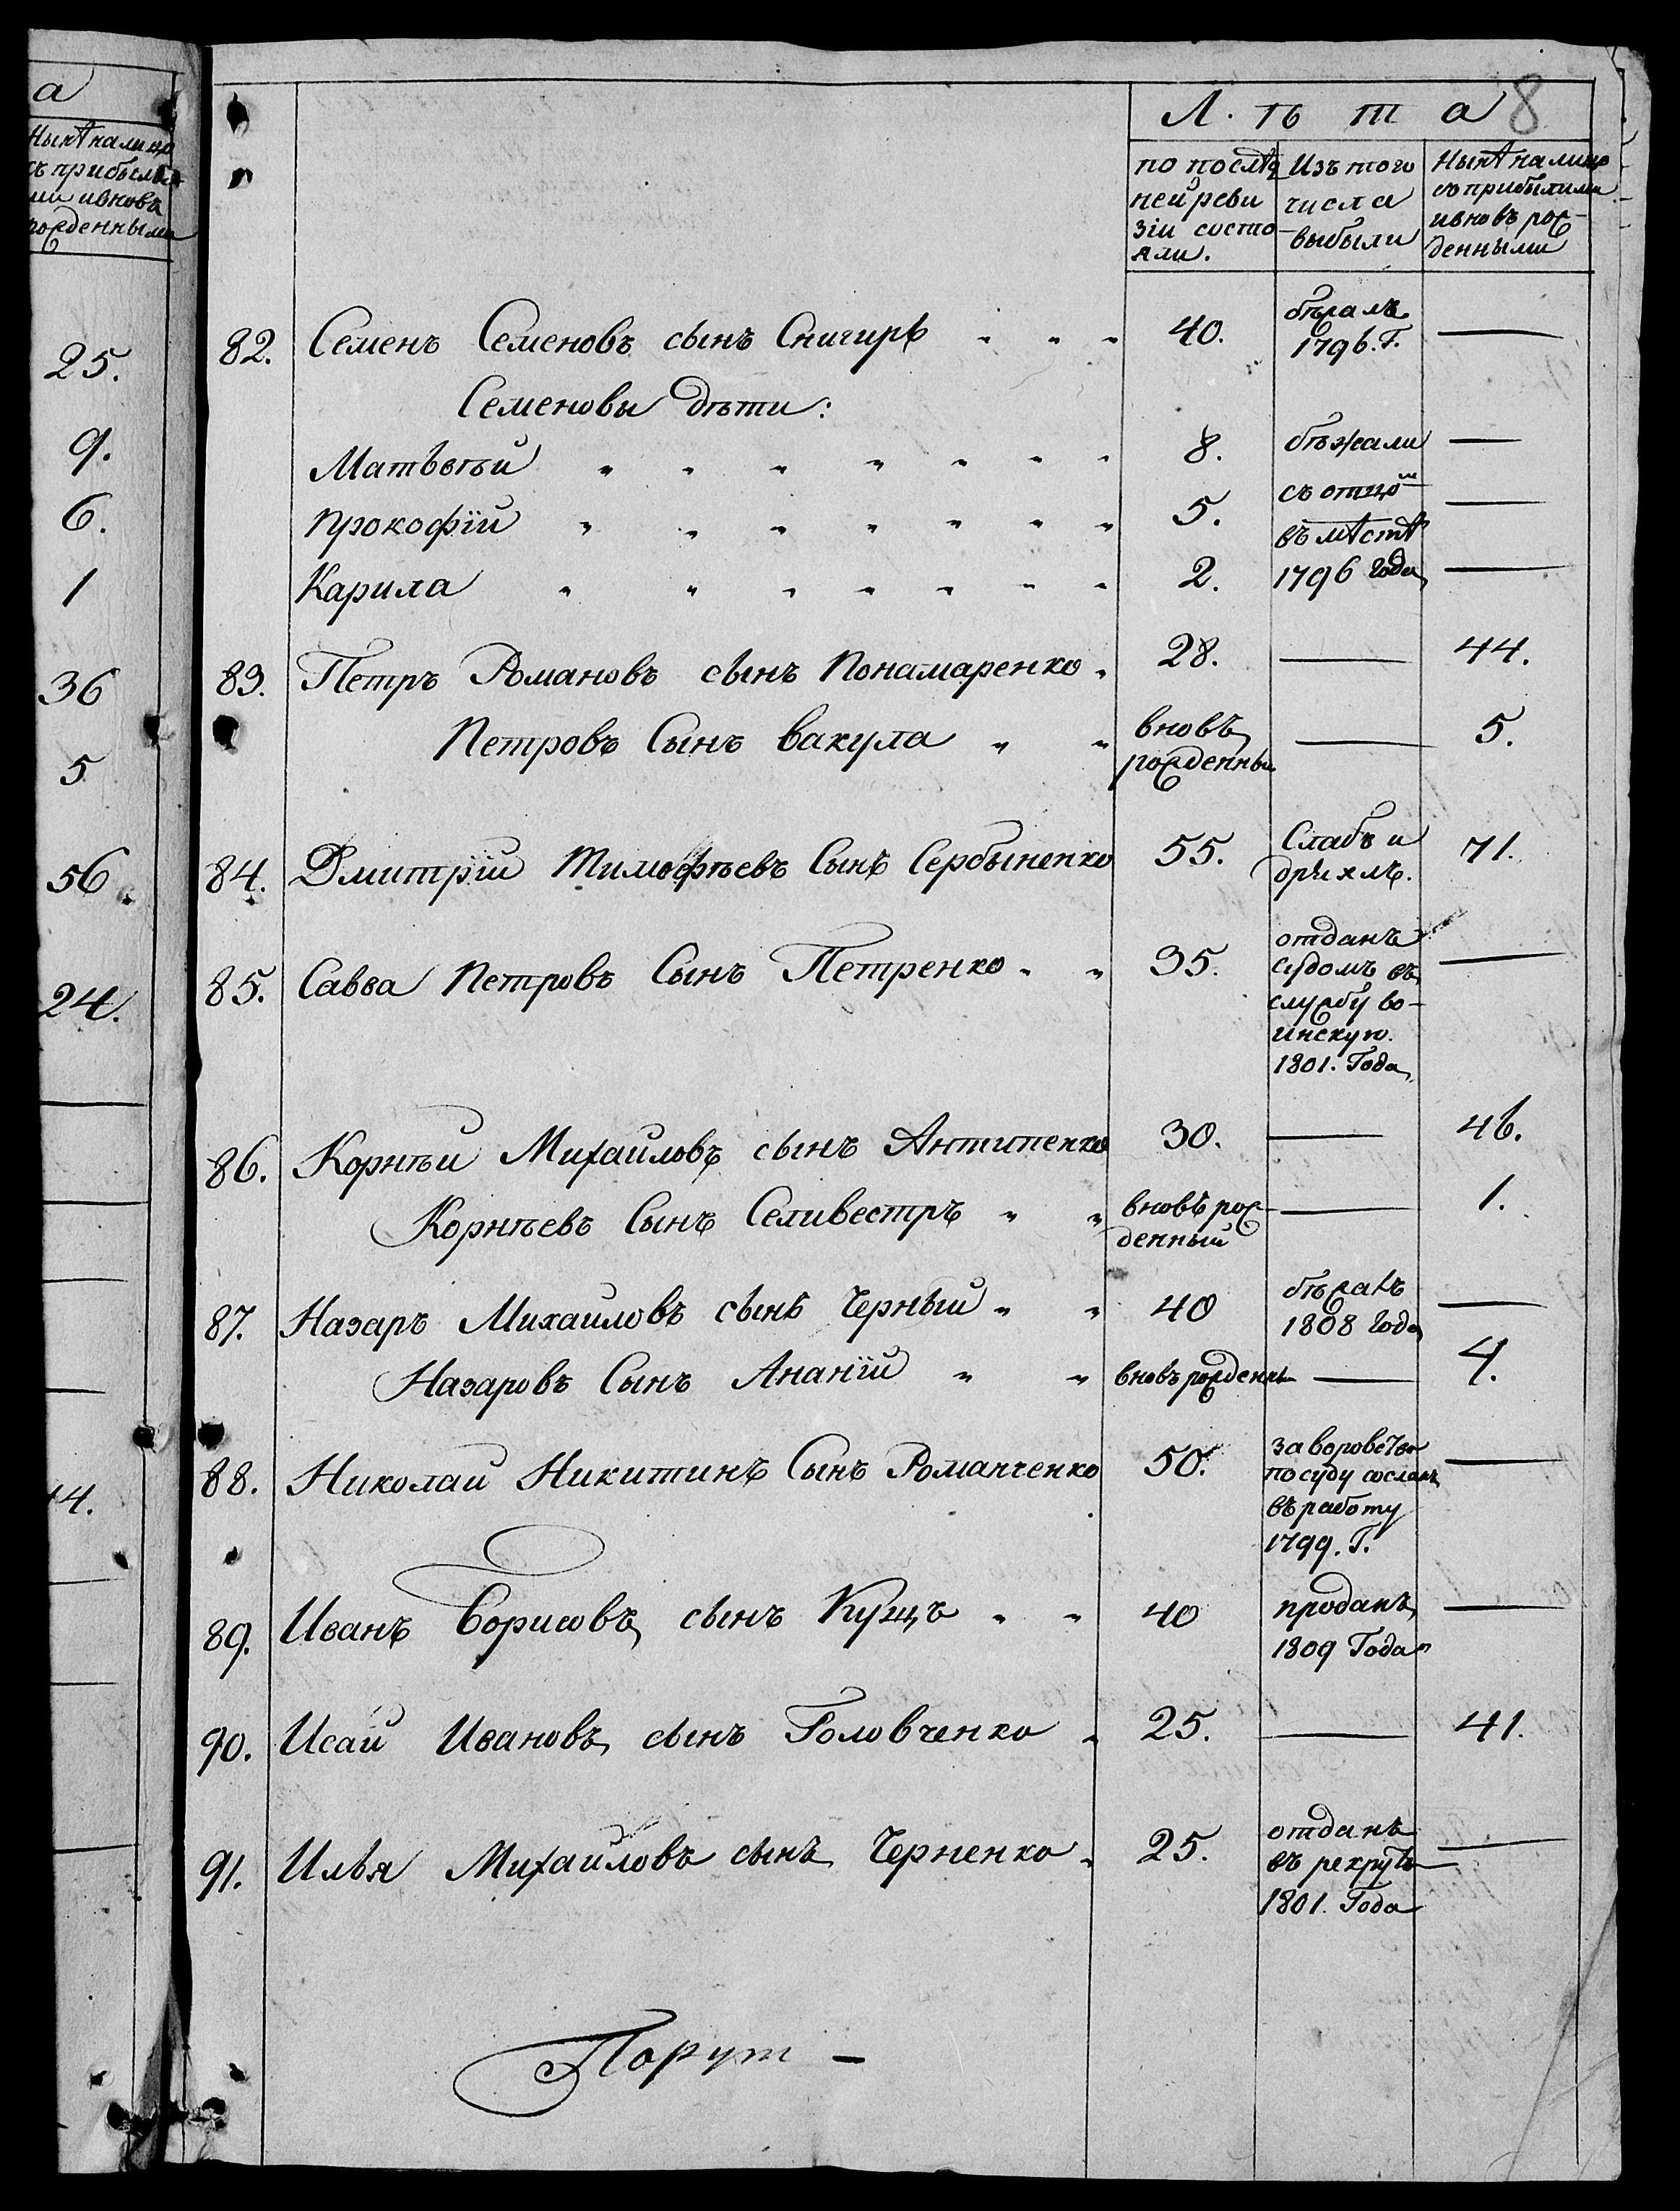 а
Нынѣ налицо
съ прибылы-
ми ивновь
рожденными
25.
9.
6.
1
36
5
56.
24.
14.
Л ѣ т а 8
по послѣд
ней реви
зіи состо
яли.
Изъ того
числа
выбыли
Нынѣ налицо
съ прибылыми
ивновь рож-
денными
82. Семенъ Семеновъ сынъ Снигирь " " " 40. бѣжалъ —
1796. Г.
Семеновы дѣти:
Матвѣй " " " " " " " 8. бѣжали —
Прокофій " " " " " " " 5. съ отцом —
въ мѣстѣ
Карила " " " " " " " 2. 1796 года —
83. Петръ Романовъ сынъ Понамаренко " 28. — 44.
Петровъ Сынъ Вакула " " вновь — 5.
рожденны
84. Дмитрій Тимофѣевъ Сынъ Сербыненко 55. Слабъ и 71.
дряхлъ.
85. Савва Петровъ Сынъ Петренко " " 35. отданъ —
судомъ въ
службу во-
инскую.
1801. Года
86. Корнѣй Михайловъ сынъ Антипенко 30. — 46.
Корнѣевъ Сынъ Селивестръ " " вновь рож- — 1.
денный
87. Назаръ Михайловъ сынъ Черный " " 40 бѣжалъ —
1808 года
Назаровъ Сынъ Ананій " " вновь рожден — 4.
88. Николай Никитинъ Сынъ Романченко 50. за воровство —
по суду сосланъ
въ работу
1799. Г.
89. Иванъ Борисовъ сынъ Кущъ " " 40 проданъ —
1809 Года
90. Исай Ивановъ сынъ Головченко " 25. — 41.
91. Илья Михайловъ сынъ Черненко " 25. отданъ —
въ рекруты
1801. Года
Порут —